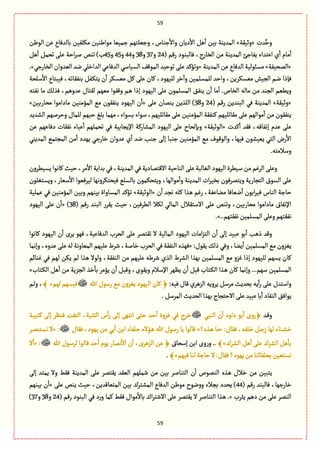 59
وحَّدت «وثيقة» المدينة بين أهل الأديان والأجناس، وجعلتهم جميعا مواطنين مكلفين بالدفاع عن الوطن
أمام أي اعتداء يفاجئ المدينة من الخارج، فالبنود رقم (24 و37 و38 و44 و45 و45ب) تنص صراحة على تحمل أهل
«الصحيفة» مسئولية الدفاع عن المدينة «وتؤكد على توحيد الموقف السياسي الدفاعي الداخلي ضد العدوان الخارجي».
فإذا ضم الجيش معسكرين، واحد للمسلمين وآخر لليهود، كان على كل معسكر أن يتكفل بنفقاته، فيبتاع الأسلحة
ويطعم الجند من ماله الخاص. أما أن ينفق المسلمون على اليهود إذا هم وقفوا معهم لقتال عدوهم، فذلك ما نفته
«وثيقة» المدينة في البندين رقم (24 و38) اللذين ينصان على «أن اليهود ينفقون مع المؤمنين ماداموا محاربين»
ينفقون من أموالهم على مقاتليهم كنفقة المؤمنين على مقاتليهم، سواء بسواء، مهما بلغ حبهم للمال وحرصهم الشديد
على عدم إنفاقه، فقد أكدت «الوثيقة» وبإلحاح على اليهود المشاركة الإيجابية في تحملهم أعباء نفقات دفاعهم عن
الأرض التي يعيشون فيها، والوقوف مع المؤمنين جنبا إلى جنب ضد أي عدوان خارجي يهدد أمن المجتمع المديني
وسلامته.
وعلى الرغم من سيطرة اليهود الغالبة على الناحية الاقتصادية في المدينة، في بداية الأمر، حيث كانوا يسيطرون
على السوق التجارية ويتصرفون بخيرات المدينة وأموالها، ويتحكمون بالسلع فيحتكرونها ليرفعوا الأسعار، ويستغلون
حاجة الناس فيرابون أضعافا مضاعفة، رغم هذا كله نجد أن «الوثيقة» تؤكد المساواة بينهم وبين المؤمنين في عملية
الإنفاق ماداموا محاربين، وتنص على الاستقلال المالي لكلا الطرفين، حيث يقرر البند رقم (38) «أن على اليهود
نفقتهم وعلى المسلمين نفقتهم..».
وقد ذهب أبو عبيد إلى أن التزامات اليهود المالية لا تقتصر على الحرب الدفاعية، فهو يرى أن اليهود كانوا
يغزون مع المسلمين أيضا، وفي ذلك يقول: «فهذه النفقة في الحرب خاصة، شرط عليهم المعاونة له على عدوه، وإنما
كان يسهم لليهود إذا غزو مع المسلمين بهذا الشرط الذي شرطه عليهم من النفقة، ولولا هذا لم يكن لهم في غنائم
المسلمين سهم... وإنما كان هذا الكتاب قبل أن يظهر الإسلام ويقوى، وقبل أن يؤمر بأخذ الجزية من أهل الكتاب»
واستدل على رأيه بحديث مرسل يرويه الزهري قال فيه: { كان اليهود يغزون مع رسول الله ﷺ فيسهم لهم }، ولم
يوافق النقاد أبا عبيد على الاحتجاج بهذا الحديث المرسل.
وقد {روى أبو داود أن النبي ﷺ خرج في غزوة أحد حتى انتهى إلى رأس الثنية، التفت فنظر إلى كتيبة
خشناء لها زجل خلفه، فقال: «ما هذه؟» قالوا يا رسول الله هؤلاء حلفاء ابن أبي من يهود، فقال ﷺ: «لا نستنصر
بأهل الشرك على أهل الشرك» } .. وروى ابن إسحاق { عن الزهرى، أن الأنصار يوم أحد قالوا لرسول الله ﷺ: «ألا
نستعين بحلفائنا من يهود؟ فقال: لا حاجة لنا فيهم» }.
يتبين من خلال هذه النصوص أن التناصر بين من شملهم العقد يقتصر على المدينة فقط ولا يمتد إلى
خارجها، فالبند رقم (44) يحدد بجلاء ووضوح موطن الدفاع المشترك بين المتعاقدين، حيث ينص على «أن بينهم
النصر على من دهم يثرب». هذا التناصر لا يقتصر على الاشتراك بالأموال فقط كما ورد في البنود رقم (24 و38 و37)
59